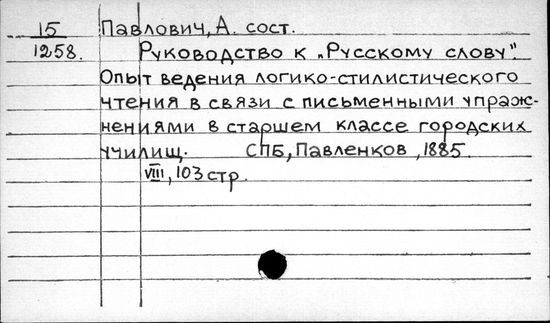 15 Павлович, А. сост.
1258. Руководство к „Русскому слову".
Опыт ведения логико-стилистического
чтения в связи с письменными упраж-
нениями в старшем классе городских
училищ. СПБ, Павленков, 1885.
VIII, 103 стр.